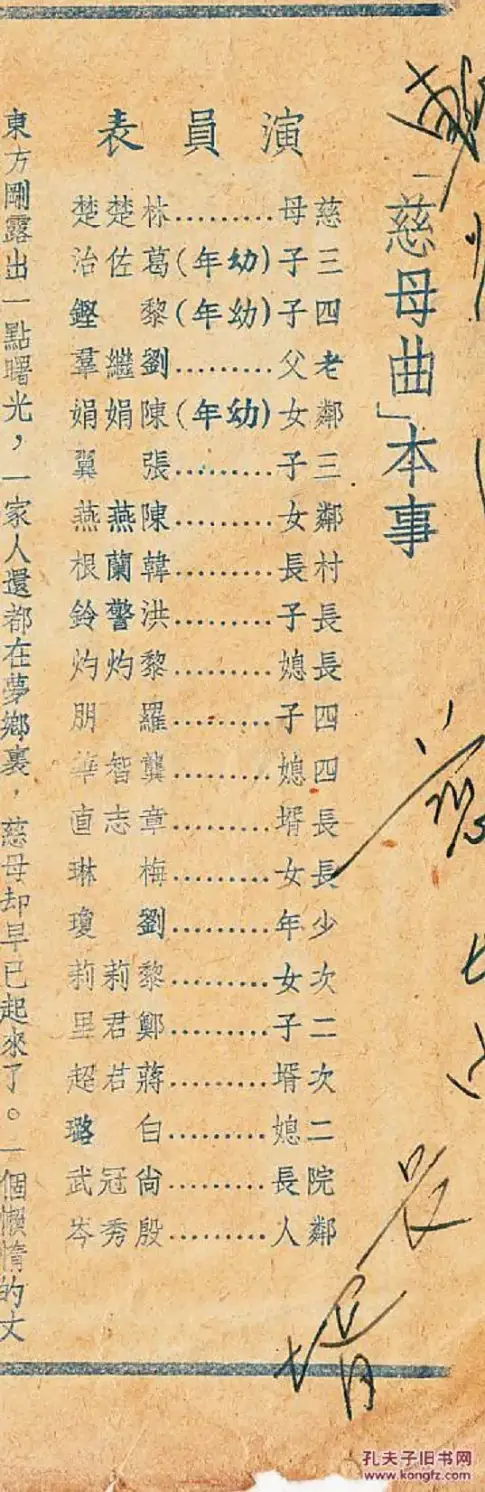 「慈母曲」本事
演員表
慈母.........林楚楚
三子(幼年)葛佐治
四子(幼年)黎鏗
老父.........劉繼羣
鄰女(幼年)陳娟娟
三子.........張翼
鄰女.........陳燕燕
村長.........韓蘭根
長子.........洪警鈴
長媳.........黎灼灼
四子.........羅朋
四媳.........龔智華
長壻.........章志直
長女.........梅琳
少年.........劉瓊
次女.........黎莉莉
二子.........鄭君里
次壻.........蔣君超
二媳.........白璐
院長.........尚冠武
鄰人.........殷秀岑
東方剛露出一點曙光，一家人還都在夢鄉裏，慈母却早已起來了。一個懶惰的丈
孔夫子旧书网
www.kongfz.com